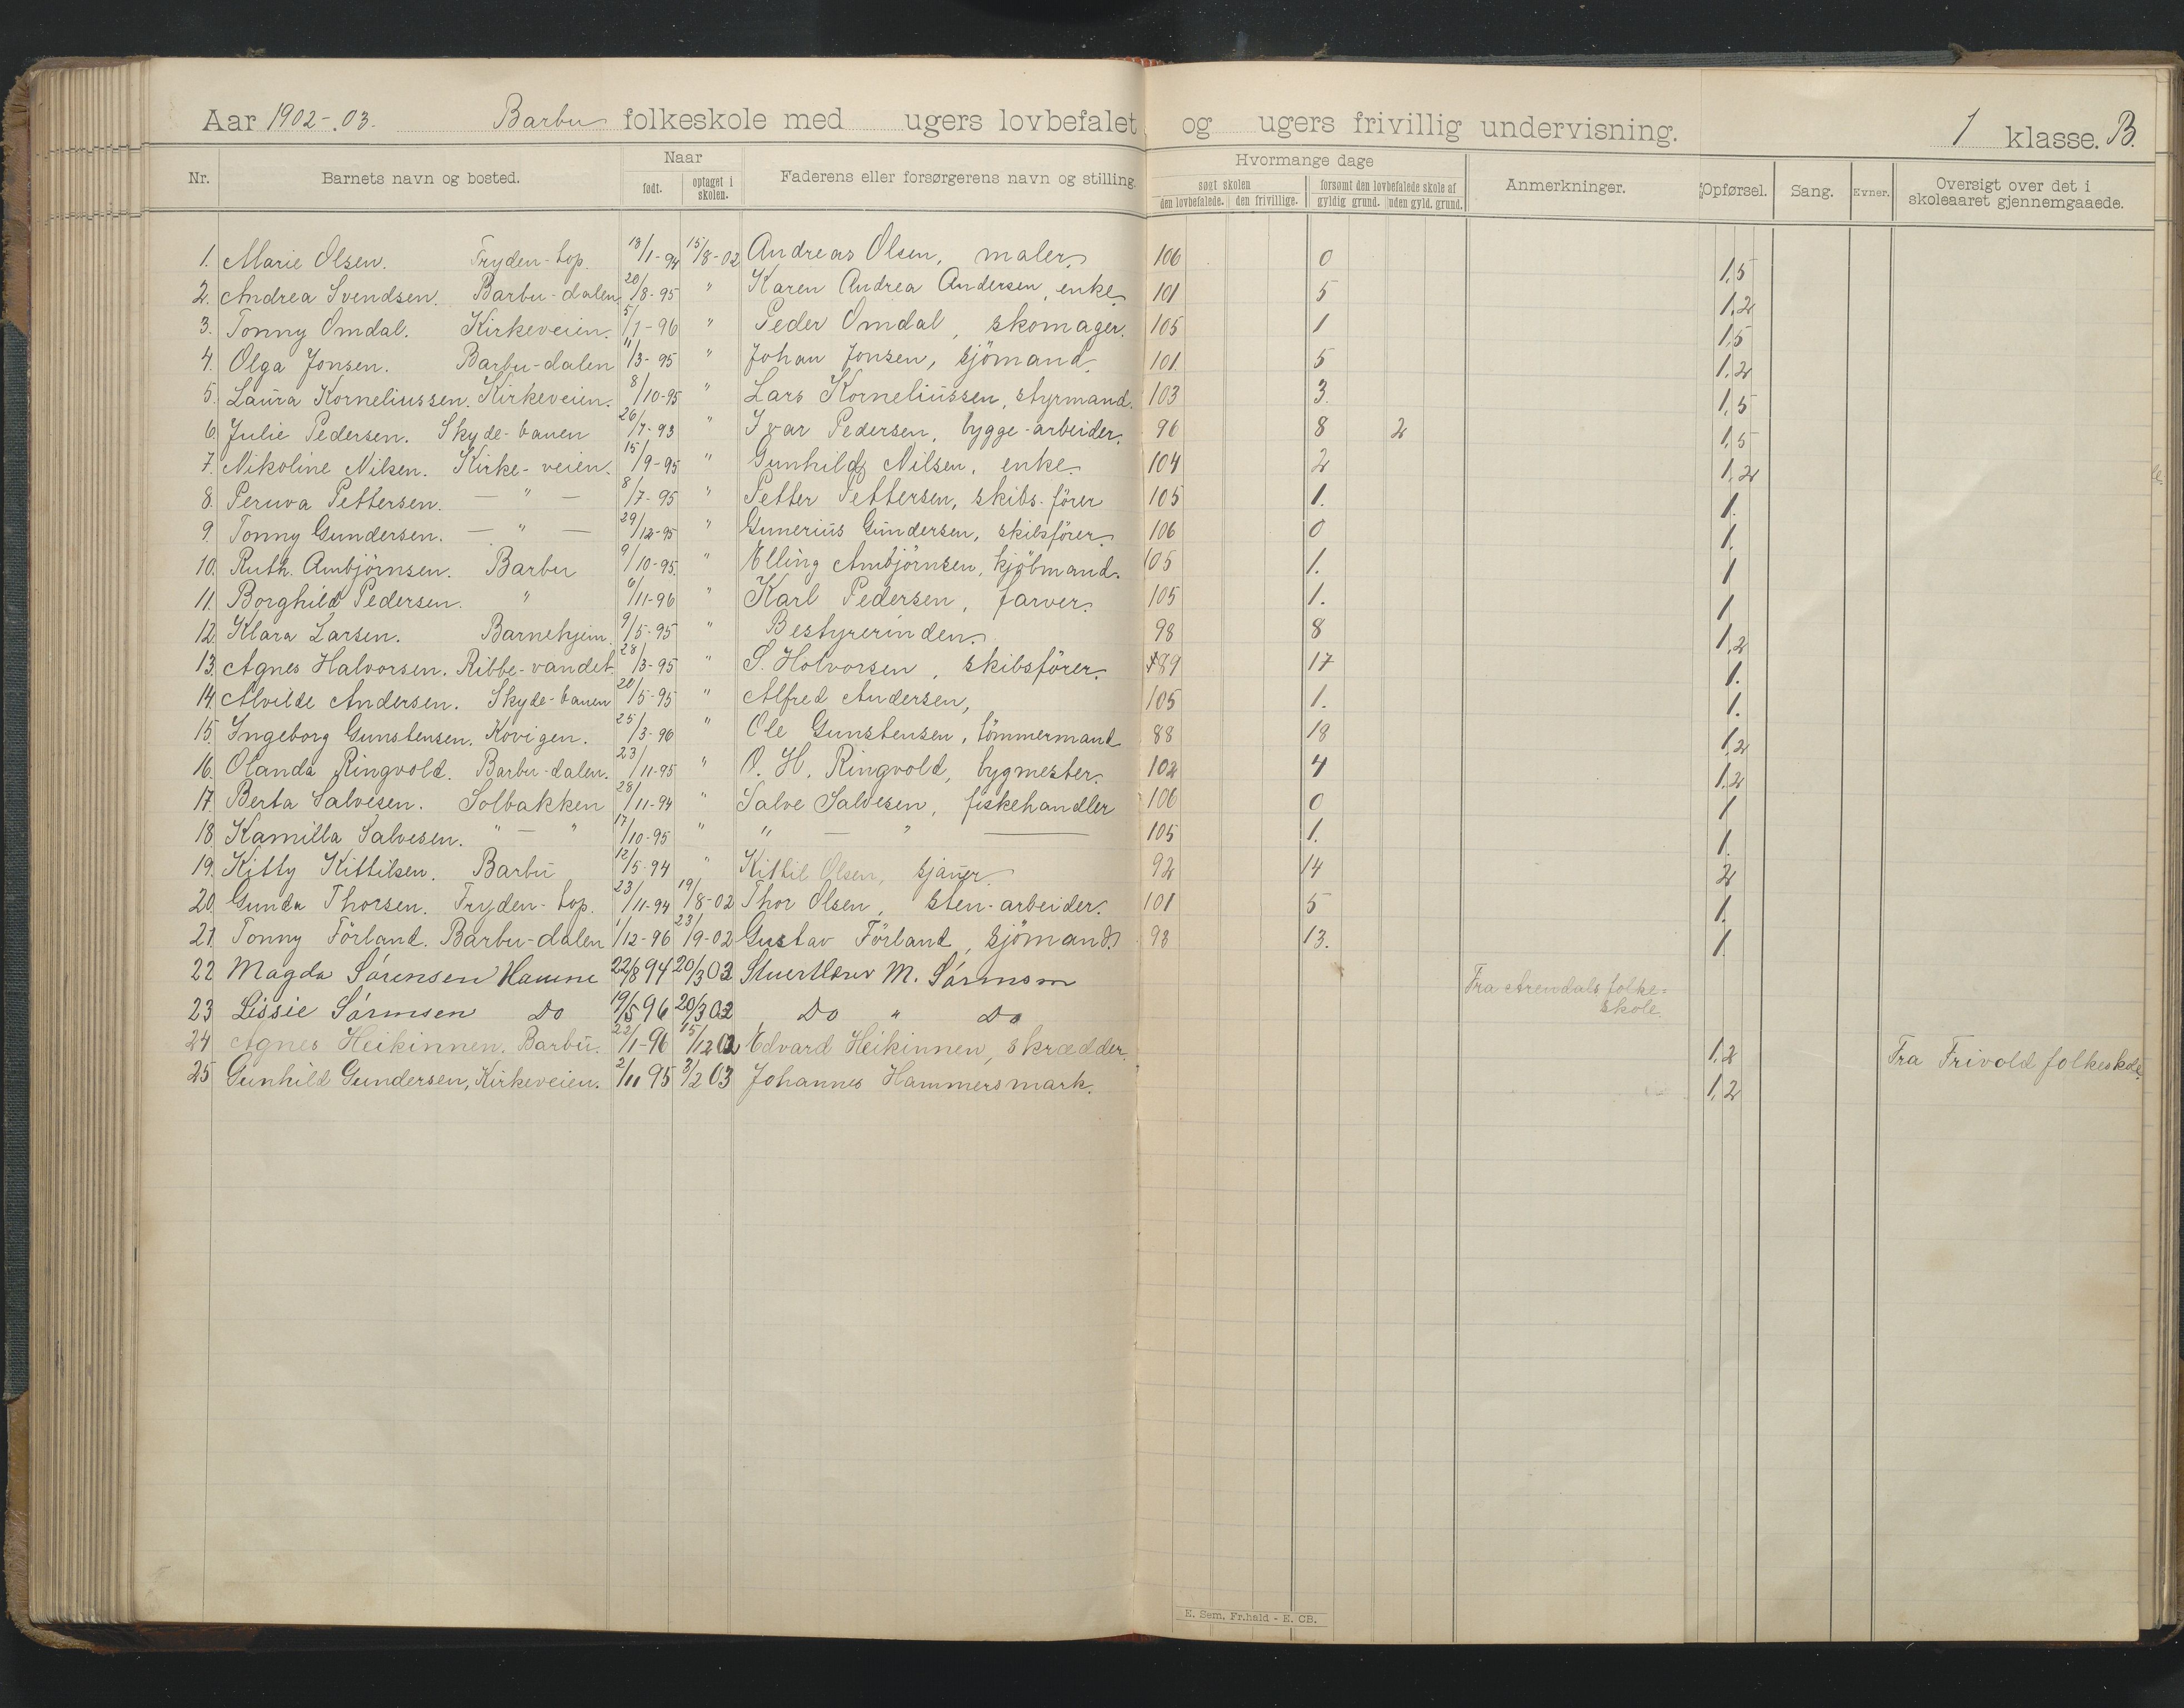 Aar 1902-03. Barbu folkeskole med ugers lovbefalet og ugers frivillig undervisning. 1 klasse. B.
Nr. Barnets navn og bosted. Naar født. optaget i skolen. Faderens eller forsørgerens navn og stilling. Hvormange dage søgt skolen den lovbefalede. den frivillige. forsømt den lovbefalede skole af gyldig grund. uden gyld. grund. Anmerkninger. Opførsel. Sang. Evner. Oversigt over det i skoleaaret gjennemgaaede.
1. Marie Olsen. Fryden-top. 13/1-94 15/8-02 Andreas Olsen, maler. 106 0 1,5
2. Andrea Svendsen. Barbu-dalen 20/8-95 " Karen Andrea Andersen, enke. 101 5 1,2
3. Tonny Omdal. Kirkeveien. 5/1-96 " Peder Omdal, skomager. 105 1 1,5
4. Olga Jonsen. Barbu-dalen 11/3-95 " Johan Jonsen, sjömand. 101. 5 1,2
5. Laura Korneliussen. Kirkeveien. 8/10-95 " Lars Korneliussen, styrmand. 103 3. 1,5
6. Julie Pedersen. Skyde-banen 26/7-93 " Ivar Pedersen, bygge-arbeider. 96 8 2 1,5
7. Nikoline Nilsen. Kirke-veien. 15/9-95 " Gunhild Nilsen, enke. 104 2 1,2
8. Peruva Pettersen. — " — 8/7-95 " Petter Pettersen, skibs-förer 105 1. 1.
9. Tonny Gundersen. — " — 29/12-95 " Gunerius Gundersen, skibsförer. 106 0 1.
10. Ruth. Ambjörnsen. Barbu 9/10-95. " Elling Ambjörnsen, kjöbmand. 105 1. 1
11. Borghild Pedersen. " 6/11-96 " Karl Pedersen, farver. 105 1. 1
12. Klara Larsen. Barnehjem. 9/5-95 " Bestyrerinden. 98 8 1,2
13. Agnes Halvorsen. Ribbe-vandet. 28/3-95 " S. Holvorsen, skibsförer. 89 17 1.
14. Alvilde Andersen. Skyde-banen 20/5-95 " Alfred Andersen, 105 1. 1.
15. Ingeborg Gunstensen. Kovigen. 25/3-96 " Ole Gunstensen, tömmermand 88 18 1,2
16. Olanda Ringvold. Barbu-dalen. 23/11-95 " O. H. Ringvold, bygmester. 102 4 1,2
17. Berta Salvesen. Solbakken 28/11-94 " Salve Salvesen, fiskehandler 106 0 1
18. Kamilla Salvesen. " — " 17/10-95 " " — " — 105 1. 1.
19. Kitty Kittilsen. Barbu 12/5-94 " Kittil Olsen, sjauer. 92 14 2
20. Gunda Thorsen. Fryden-top. 23/11-94 19/8-02 Thor Olsen, sten-arbeider. 101 5 1.
21. Tonny Förland. Barbu-dalen 1/12-96 23/9-02 Gustav Förland, sjömand. 98 13. 1.
22 Magda Sørensen Havne 22/8 94 20/3 02 Stuertlerer M.
Fra Arendals folke=
skole.
23 Lissie Sørensen Do 19/5 96 20/3 02 Do " Do
24 Agnes Heikinnen. Barbu. 22/1-96 15/12 02 Edvard Heikinnen, skrædder. 1,2 Fra Frivold folkeskole.
25 Gunhild Gundersen, Kirkeveien. 2/11 95 3/2 03 Johannes Hammersmark. 1,2
E. Sem, Fr.hald - E. CB.